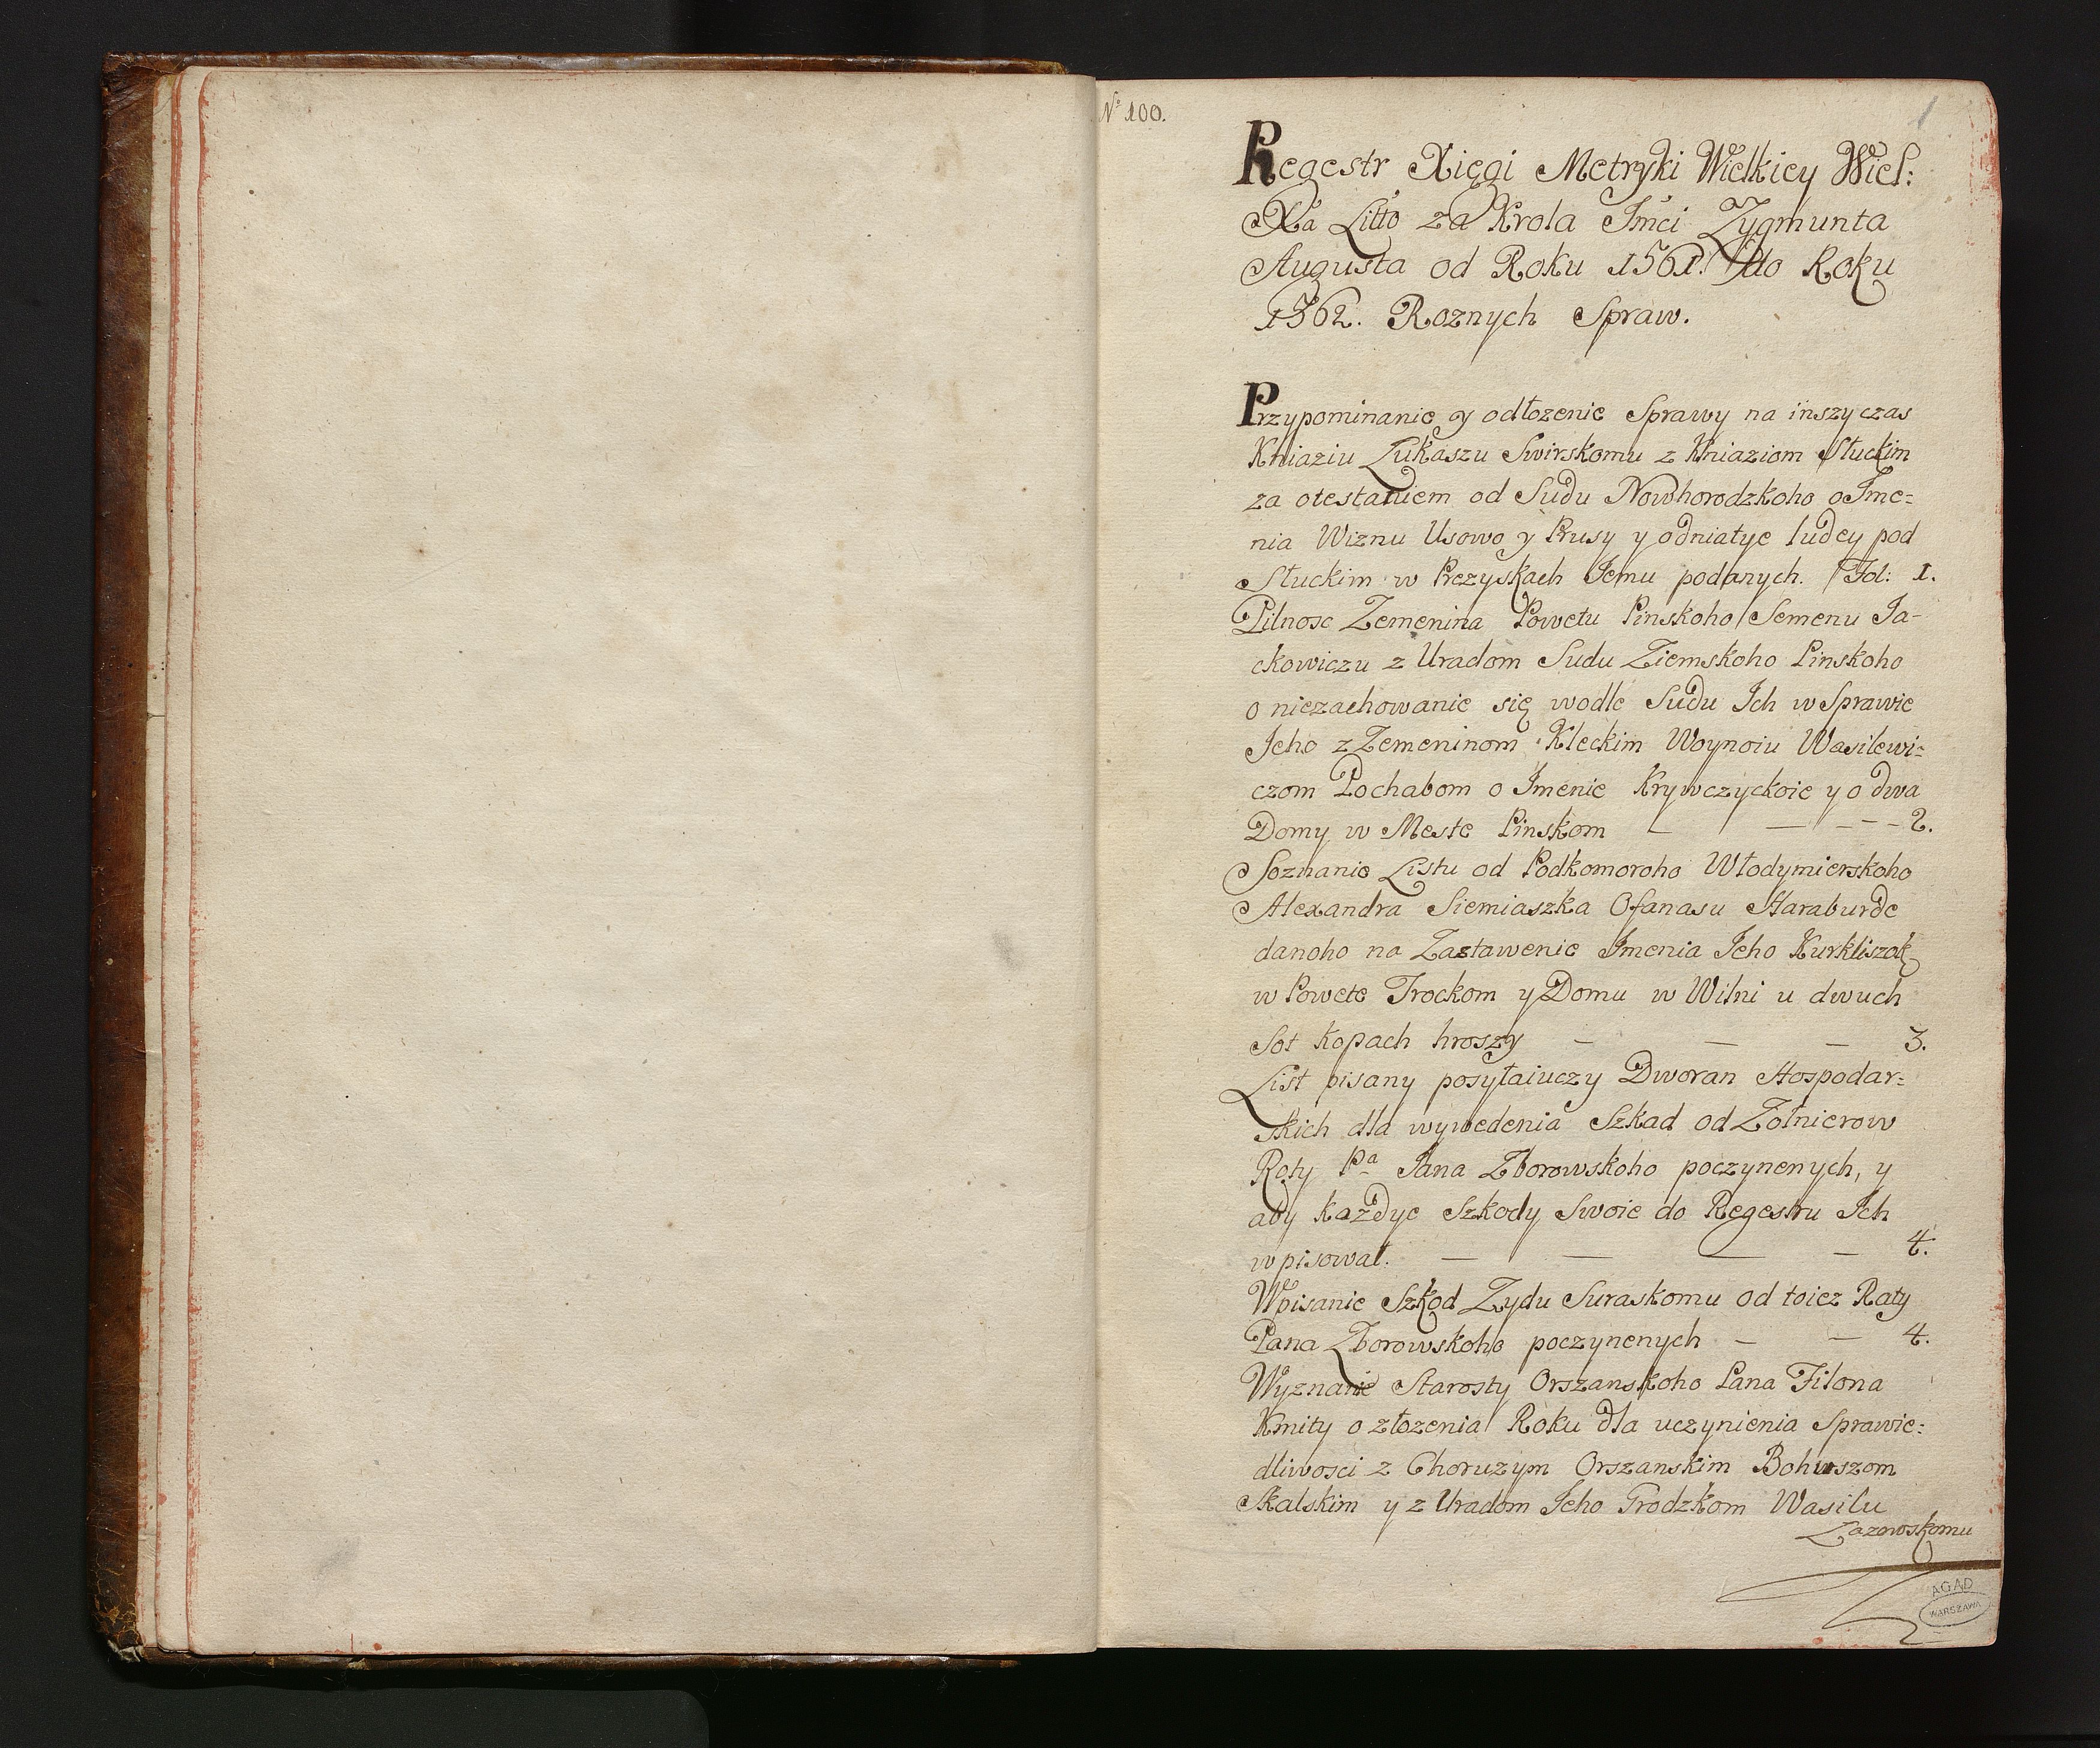 No 100.
1
Regestr Xięgi Metryki Wielkiey Wiel:
Xa Litto za Krola Jmci Zygmunta
Augusta od Roku 1561. do Roku
1562. Roznych Spraw.
Przypominanie y odłozenie Sprawy na inszy czas
Kniaziu Łukaszu Swirskomu z Kniaziom Słuckim
za otestaniem od Sudu Nowhorodzkoho o Jme-
nia Wiznu Usowo y Prusy y odniatye ludey pod
Słuckim w Prezyskach Jemu podanych. Fol: 1.
Pilnosc Zemenina Powetu Pinskoho Semenu Ja-
ckowiczu z Uradom Sudu Ziemskoho Pinskoho
o niezachowanie się wodle Sudu Jch w Sprawie
Jeho z Zemeninom Kleckim Woynoiu Wasilewi-
czom Pochabom o Jmenie Krywczyckoie y o dwa
Domy w Meste Pinskom — — - - - 2.
Soznanie Listu od Podkomoroho Włodymierskoho
Alexandra Siemiaszka Ofanasu Haraburde
danoho na Zastawenie Jmenia Jeho Kurkliszok
w Powete Trockom y Domu w Wilni u dwuch
Sot kopach hroszy — — — 3.
List pisany posyłaiuczy Dworan Hospodar-
skich dla wywedenia Szkad od Zołnierow
Roty Pa Jana Zborowskoho poczynenych, y
aby każdye Szkody Swoie do Regestru Jch
wpisował. — — — — 4.
Wpisanie Szkod Zydu Suraskomu od toiez Raty
Pana Zborowskoho poczynenych — — 4.
Wyznanie Starosty Orszanskoho Pana Filona
Kmity o złozenia Roku dla uczynienia Sprawie-
dliwosci z Choruzym Orszanskim Bohuszom
Skalskim y z Uradom Jeho Grodzkom Wasilu
Zazowskomu
AGAD
WARSZAWA